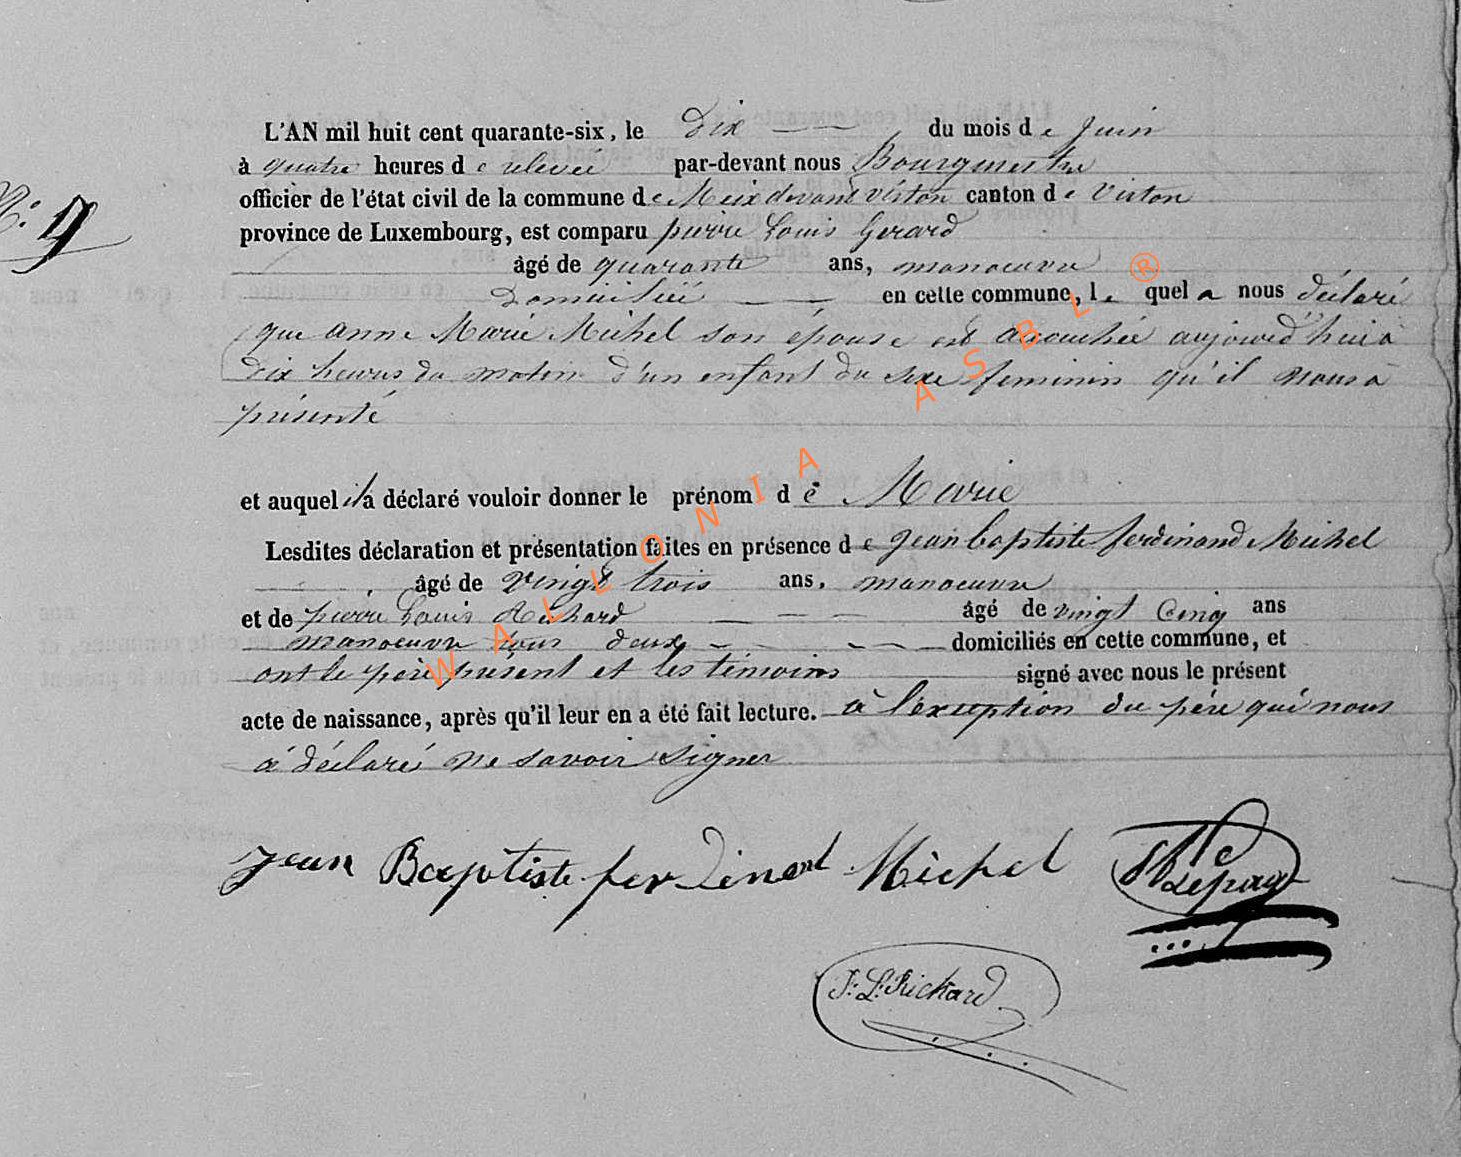 L'AN mil huit cent quarante-six, le Dix du mois de Juin
à quatre heures de relevée par-devant nous Bourgmestre
N° 9
officier de l'état civil de la commune de Meix devant virton canton de Virton
province de Luxembourg, est comparu pierre Louis Gerard
âgé de quarante ans, manoeuvre
Domicilié en cette commune, le quel a nous déclaré
que anne Marie Michel son épouse est accouchée aujourd'hui à
dix heures du matin d'un enfant du sexe feminin qu'il nous a
présenté
et auquel il a déclaré vouloir donner le prénom de Marie
Lesdites déclaration et présentation faites en présence de Jean baptiste ferdinand Michel
âgé de vingt trois ans, manoeuvre
et de pierre Louis Richard âgé de vingt Cinq ans
manoeuvre tous deux domiciliés en cette commune, et
ont le père présent et les témoins signé avec nous le présent
acte de naissance, après qu'il leur en a été fait lecture. à l'exception du père qui nous
à déclaré ne savoir signer
Jean Baptiste ferdinand Michel
Lepage
P. L. Richard
WALLONIA ASBL ®